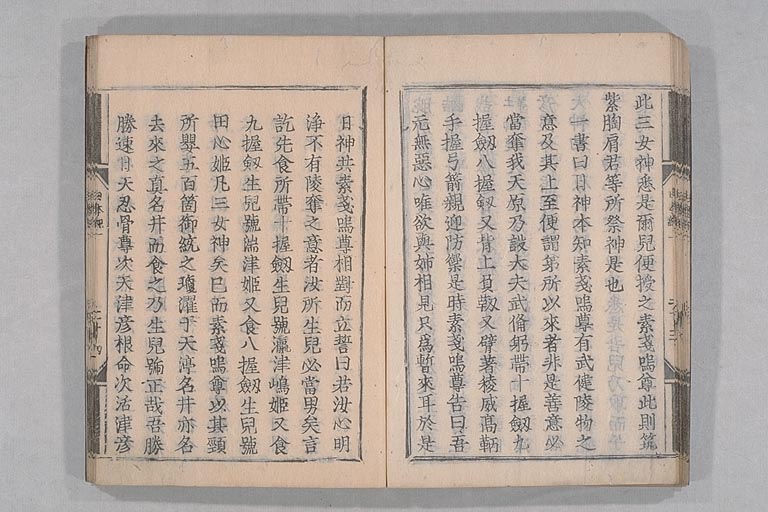 此三女神悉是爾兒便授之素戔嗚尊此則筑
紫胸肩君等所祭神是也
一書曰日神本知素戔嗚尊有武健陵物之
意及其上至便謂弟所以來者非是善意必
當奪我天原乃設大夫武備躬帶十握劔九
握劔八握劔又背上負靫又臂著稜威高鞆
手握弓箭親迎防禦是時素戔嗚尊告曰吾
元無惡心唯欲與姉相見只爲暫來耳於是
日神共素戔嗚尊相對而立誓曰若汝心明
浄不有陵奪之意者汝所生兒必當男矣言
訖先食所帶十握劔生兒號瀛津嶋姫又食
九握劔生兒號湍津姫又食八握劔生兒號
田心姫凡三女神矣已而素戔嗚尊以其頸
所嬰五百箇御統之瓊濯于天渟名井亦名
去來之真名井而食之乃生兒號正哉吾勝
勝速日天忍骨尊次天津彦根命次活津彦